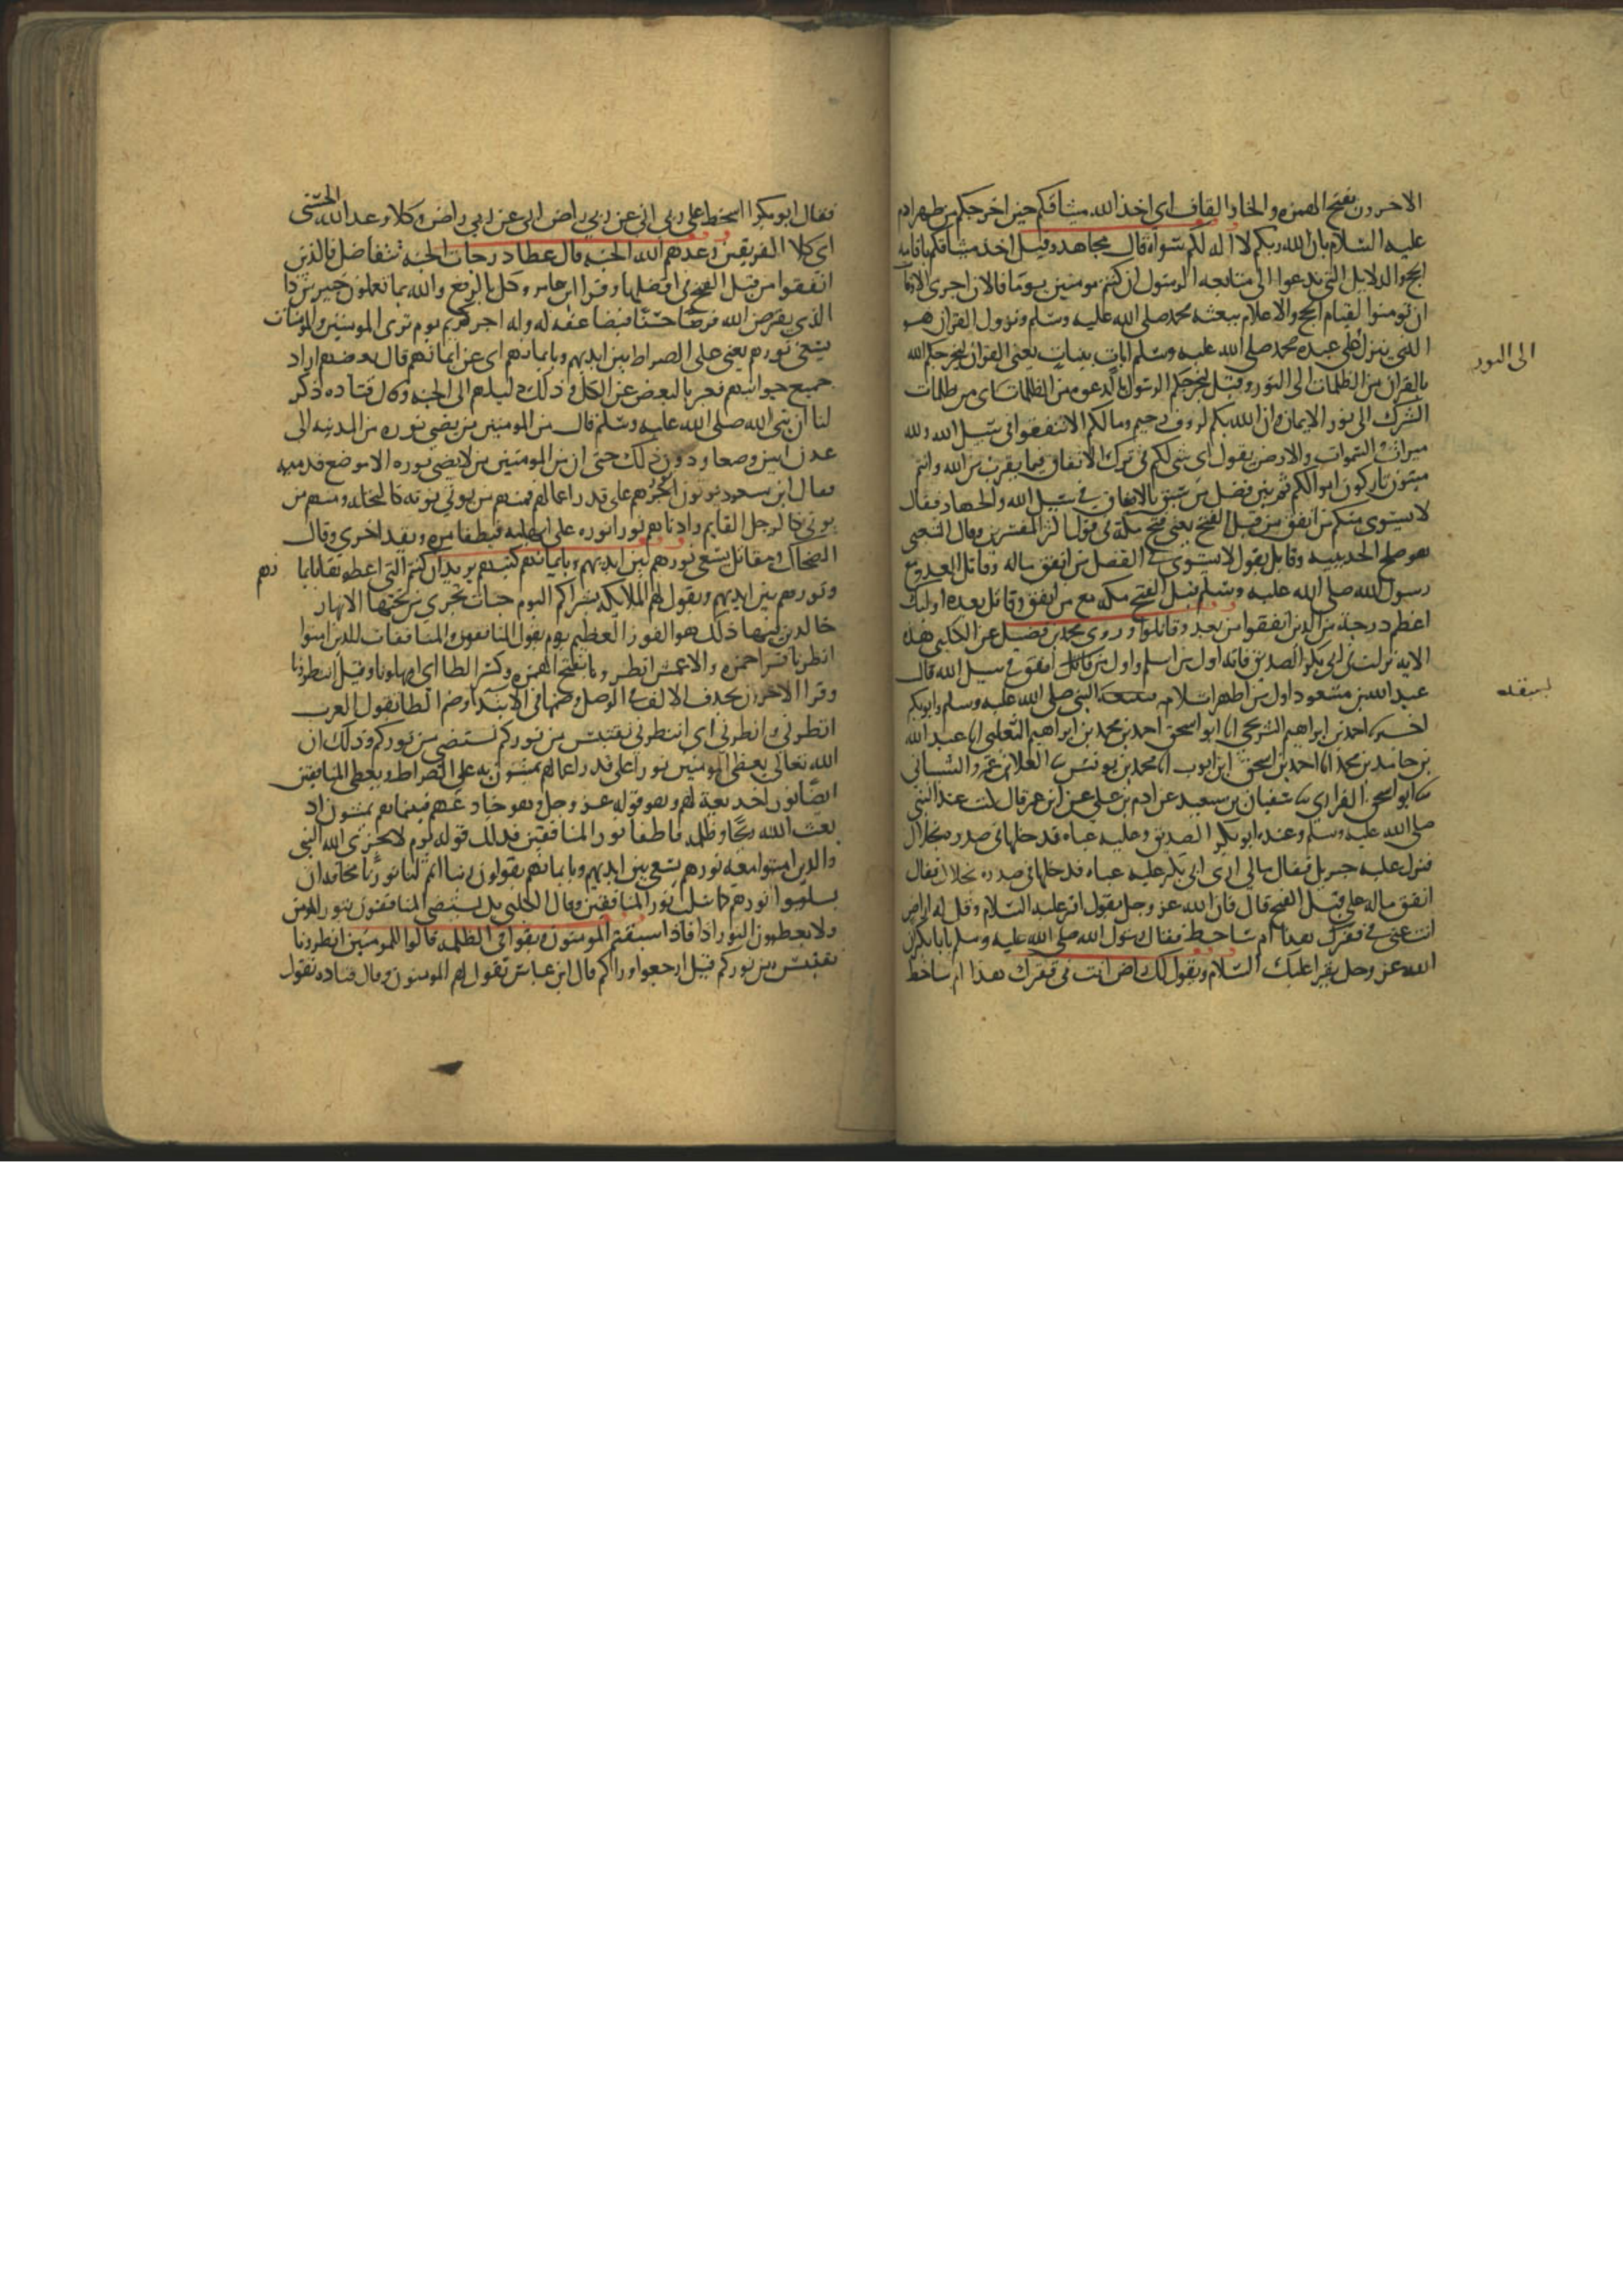 الاخرون بفتح الهمزه والخاو القاف اي اخذ الله ميثاقكم حين اخرجكم من ظهر ادم
عليه السلام بان الله ربكم لا اله لكم سواه قال مجاهد وقيل اخذ ميثاقكم باقامه
الحجج والدلايل التي تدعوا الى متابعه الرسول ان كنتم مومنين يوما فالان احرى الاوقات
ان تومنوا لقيام الحجج والاعلام ببعثه محمد صلى الله عليه وسلم ونزول القران هو
الذي ينزل على عبده محمد صلى الله عليه وسلم ايات بينات يعني القران ليخرجكم الله
بالقران من الظلمات الى النور وقيل ليخرجكم الرسول بالدعوه من الظلمات اى من ظلمات
الى النور
الشرك الى نور الايمان وان الله بكم لروف رحيم وما لكم الا تنفقوا في سبيل الله ولله
ميراث السموات والارض يقول اي شي لكم في ترك الانفاق فيما يقرب من الله وانتم
ميتون تاركون اموالكم ثم بين فضل من سبق بالانفاق في سبيل الله والجهاد فقال
لا يستوى منكم من انفق من قبل الفتح يعني فتح مكة في قول اكثر المفسرين وقال الشعبي
هو صلح الحديبيه وقاتل يقول لا يستوى في الفضل من انفق ماله وقاتل العدو مع
رسول الله صلى الله عليه وسلم قبل الفتح مكه مع من انفق وقاتل بعده اوليك
اعظم درجة من الذين انفقوا من بعد وقاتلوا وروى محمد بن فضيل عن الكلبي هذه
الايه نزلت في ابي بكر الصديق فانه اول من اسلم واول من قاتل انفق في سبيل الله قال
عبد الله بن مسعود اول من اظهر اسلامه النبي صلى الله عليه وسلم وابو بكر
بسيفه
اخبرنا احمد بن ابراهيم الشريحي انا ابو اسحق احمد بن محمد بن ابراهيم الثعلبي انا عبد الله
بن حامد بن محمد انا احمد بن اسحق ابن ايوب انا محمد بن يونس ثنا العلا بن عمرو الشيباني
ثنا ابو اسحق الفزاري ثنا سفيان بن سعيد عن ادم بن علي عن ابن عمر قال كنت عند النبي
صلى الله عليه وسلم وعنده ابو بكر الصديق وعليه عباه قد خلها في صدره بخلال
فنزل عليه جبريل فقال مالي ارى ابي بكر عليه عباه قد خلها في صدره بخلال فقال
انفق ماله علي قبل الفتح قال فان الله عز وجل يقول اقر عليه السلام وقل له اراض
انت عني في فقرك هذا ام ساخط فقال رسول الله صلى الله عليه وسلم يا با بكر ان
الله عز وجل يقرا عليك السلام ويقول لك اراض انت في فقرك هذا ام ساخط
فقال ابو بكر ااسخط على ربى اني عن ربي راض انى عن ربي راض وكلا وعد الله الحسنى
اى كلا الفريقين وعدهم الله الجنه قال عطا درجات الجنه تتفاضل فالذين
انفقوا من قبل الفتح في افضلها وقرا ابن عامر وكل بالرفع والله بما تعملون خبير من ذا
الذي يقرض الله قرضا حسنا فيضاعفه له وله اجر كريم يوم ترى المومنين والمومنات
يسعى نورهم يعني على الصراط بين ايديهم وبايمانهم اى عن ايمانهم قال بعضهم اراد
جميع جوانبهم فعبر بالبعض عن الكل وذلك دليلهم الى الجنه وقال قتاده ذكر
لنا ان نبي الله صلى الله عليه وسلم قال من المومنين من يضي نوره من المدينه الى
عدن ابين وصنعا ودون ذلك حتى ان من المومنين من لا يضي نوره الا موضع قدميه
وقال ابن مسعود يوتون نورهم على قدر اعمالهم فمنهم من يوتي نوره كالنخله ومنهم من
يوتى كالرجل القايم وادناهم نورا نوره على ابهامه فيطفا مره ويقد اخرى وقال
الضحاك ومقاتل يسعى نورهم بين ايديهم وبايمانهم كتبهم يريد ان كتبهم التي اعطوها بايما نهم
ونورهم بين ايديهم ويقول لهم الملايكه بشراكم اليوم جنات تجري من تحتها الانهار
خالدين فيها ذلك هو الفوز العظيم يوم يقول المنافقون والمنافقات للذين امنوا
انظرنا قرا حمزه والاعمش انظرونا بفتح الهمزه وكسر الظا اى امهلونا وقيل انتظرونا
وقرا الاخرون بحذف الالف في الوصل وضمها في الابتدا وضم الظا يقول العرب
انظرني وانظرني اى انتظرني نقتبس من نوركم نستضي من نوركم وذلك ان
الله تعالى يعطى المومنين نورا على قدر اعمالهم يمشون به على الصراط ويعطى المنافقين
ايضا نورا خديعة لهم وهو قوله عز وجل وهو خادعهم فبينما هم يمشون اذ
بعث الله ريحا وظلمه فاطفا نور المنافقين فذلك قوله يوم لا يخزى الله النبي
والذين امنوا معه نورهم يسعى بين ايديهم وبايمانهم يقولون ربنا اتمم لنا نورنا مخافه ان
يسلبوا نورهم كما سلب نور المنافقين وقال الكلبي بل يستضي المنافقون بنور المومنين
ولا يعطون النور اذا فاذا سبقهم المومنون وبقوا في الظلمه قالوا للمومنين انظرونا
نقتبس من نوركم قيل ارجعوا وراكم قال ابن عباس يقول لهم المومنون وقال قتاده تقول